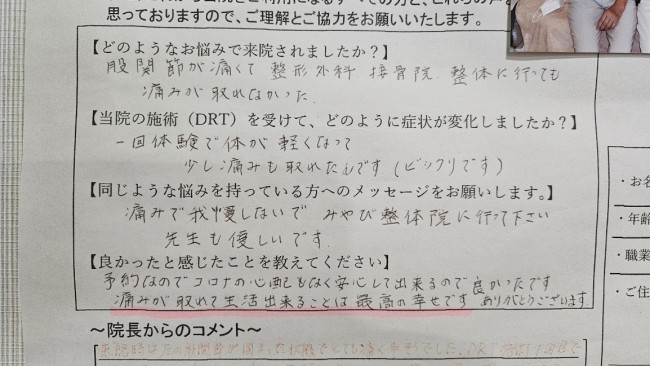 思っておりますので、ご理解とご協力をお願いいたします。
【どのようなお悩みで来院されましたか？】
股関節が痛くて 整形外科 接骨院 整体に行っても
痛みが取れなかった.
【当院の施術（DRT）を受けて、どのように症状が変化しましたか？】
一回体験で体が軽くなって
少し痛みも取れたんです(ビックリです)
【同じような悩みを持っている方へのメッセージをお願いします。】
痛みで我慢しないで みやび整体院に行って下さい
先生も優しいです.
【良かったと感じたことを教えてください】
予約なのでコロナの心配もなく安心して出来るので良かったです
痛みが取れて生活出来ることは最高の幸せです ありがとうございます
～院長からのコメント～
・お名
・年齢
・職業
・ご住